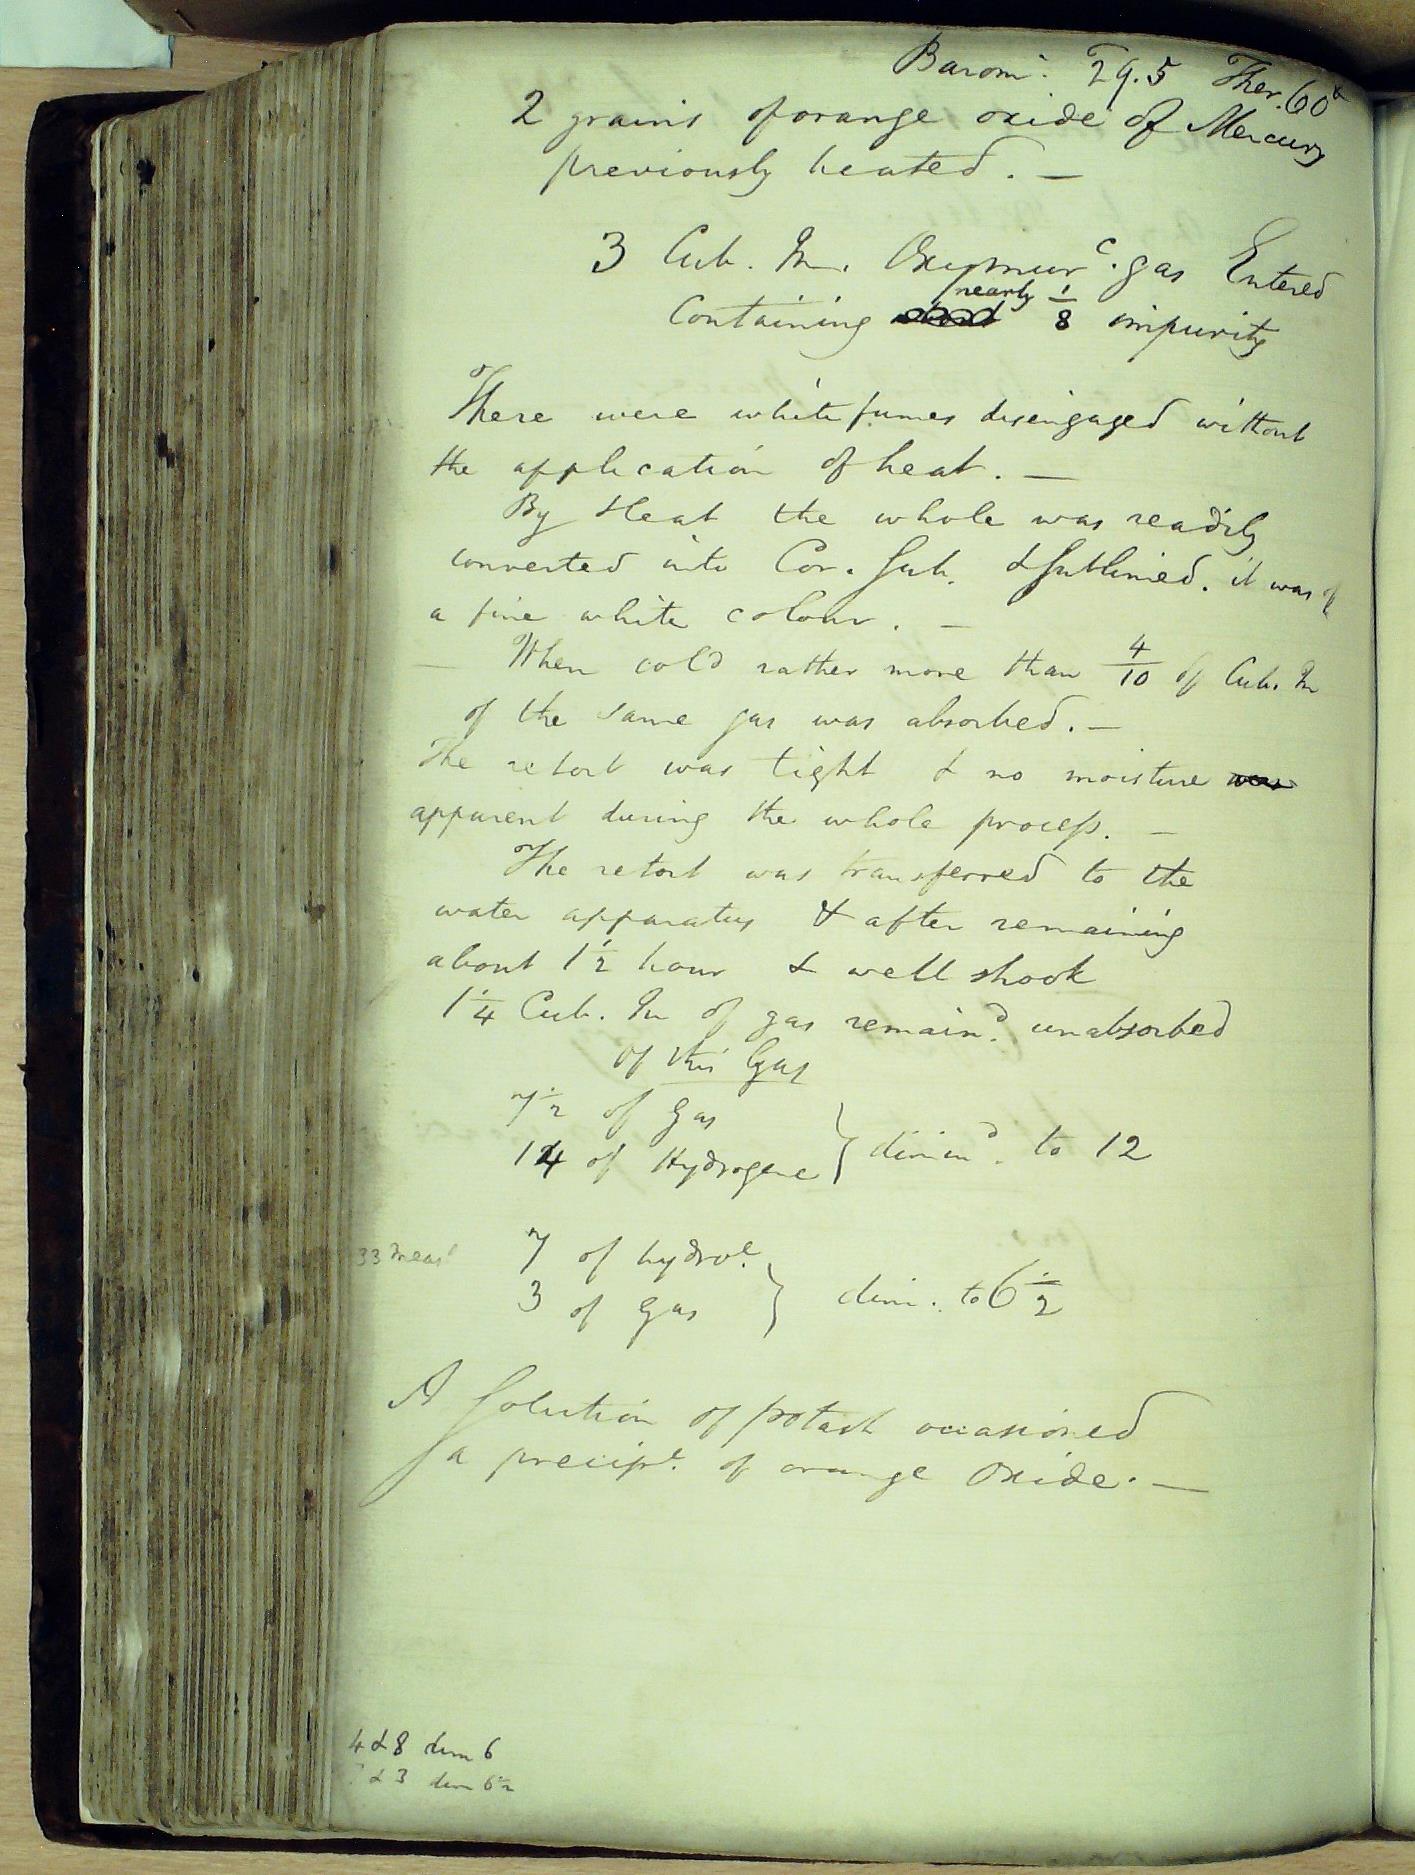 Barom.^r 29.5 Ther. 60
2 grains of orange oxide of Mercury
previously heated. —
3 Cub. In. Oxymur^c. gas Entered
Containing nearly 1/8 impurity
There were white fumes disengaged without
the application of heat. —
By Heat the whole was readily
converted into Cor. Sub. & Sublimed. it was of
a fine white colour. —
— When cold rather more than 4/10 of Cub. In
of the same gas was absorbed. —
The retort was tight & no moisture was
apparent during the whole process. —
The retort was transferred to the
water apparatus & after remaining
about 1 1/2 hour & well shook
1 1/4 Cub. In of gas remain^d. unabsorbed
of this Gas
7 1/2 of gas
14 of Hydrogene } dimin^d. to 12
33 Meas^s
7 of hydro^e.
3 of gas } dim. to 6 1/2
A Solution of potash occasioned
a precip^t. of orange Oxide. —
4 & 8 dim 6
& 3 dim 6 1/2